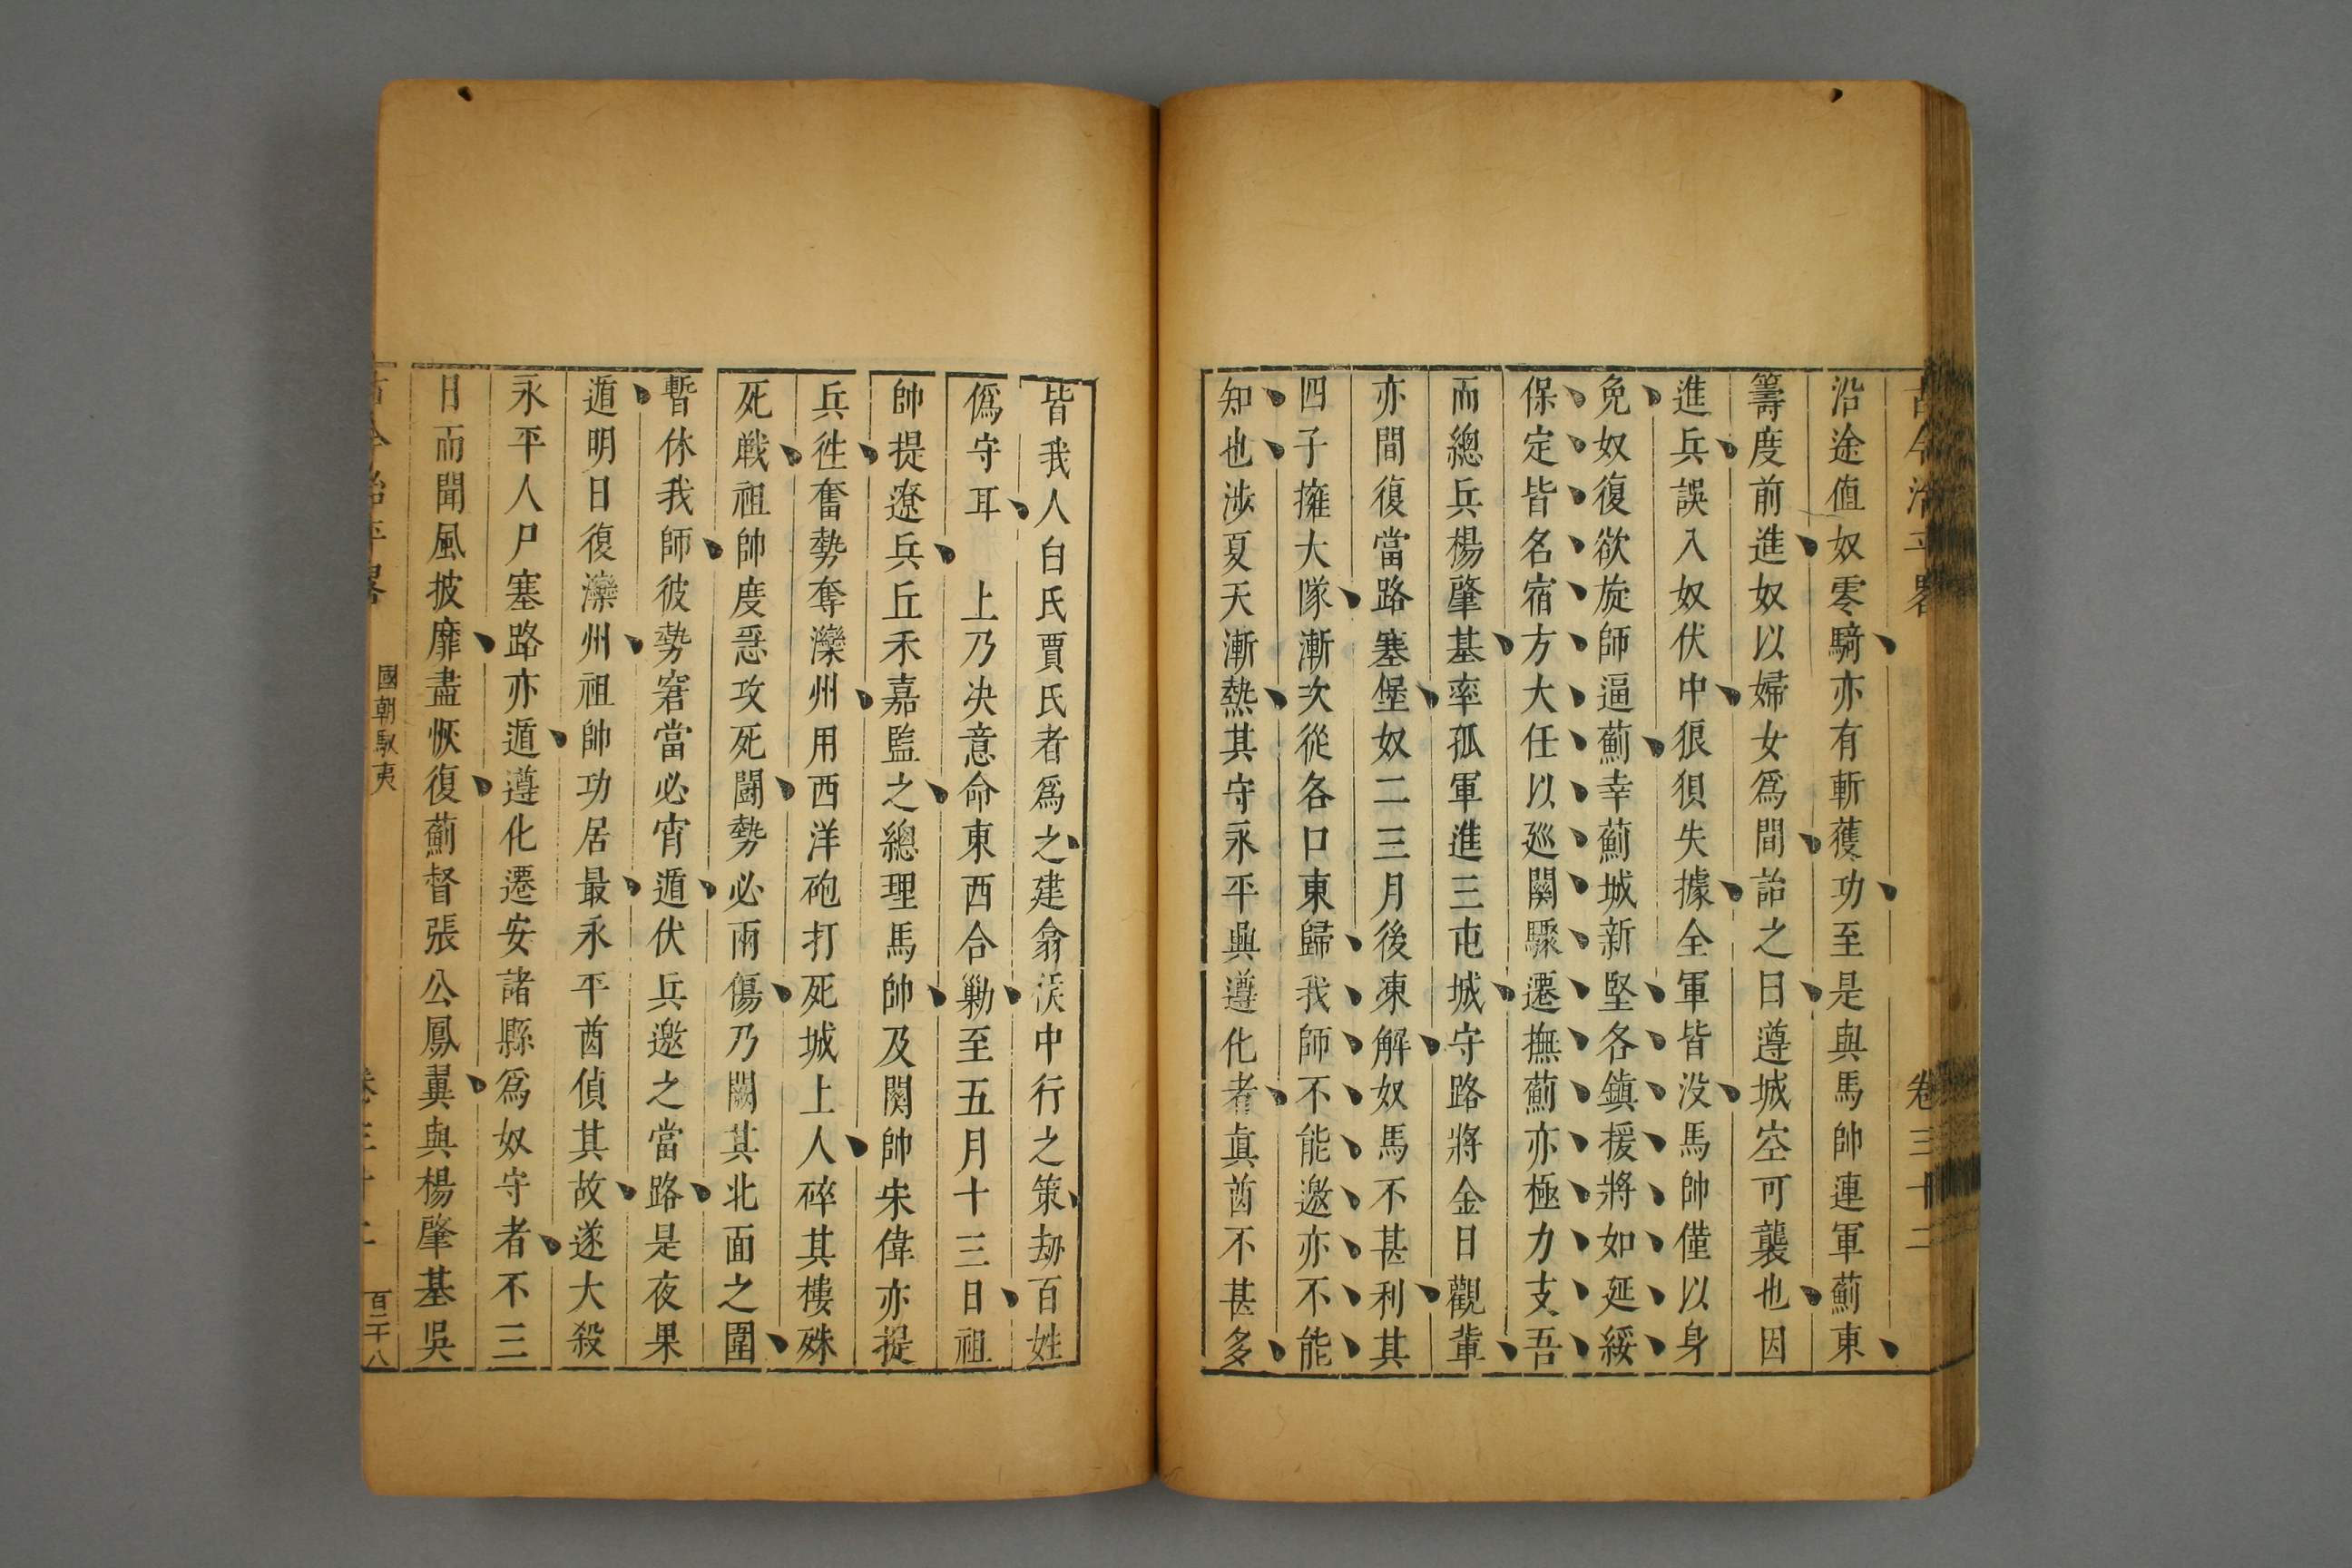 古今治平畧 卷三十二
沿途値奴零騎亦有斬獲功至是與馬帥連軍薊東
籌度前進奴以婦女爲間詒之曰遵城空可襲也因
進兵誤入奴伏中狼狽失據全軍皆没馬帥僅以身
免奴復欲旋師逼薊幸薊城新堅各鎮援將如延綏
保定皆名宿方大任以廵關驟遷撫薊亦極力支吾
而總兵楊肇基率孤軍進三屯城守路將金日觀輩
亦間復當路塞堡奴二三月後凍解奴馬不甚利其
四子擁大隊漸次從各口東歸我師不能邀亦不能
知也涉夏天漸熱其守永平與遵化者眞酋不甚多
皆我人白氏賈氏者爲之建翕侯中行之策劫百姓
僞守耳 上乃决意命東西合勦至五月十三日祖
帥提遼兵丘禾嘉監之總理馬帥及関帥宋偉亦提
兵徃奮勢奪灤州用西洋砲打死城上人碎其樓殊
死戦祖帥度惡攻死闘勢必兩傷乃闕其北面之圍
暫休我師彼勢窘當必宵遁伏兵邀之當路是夜果
遁明日復灤州祖帥功居最永平酋偵其故遂大殺
永平人尸塞路亦遁遵化遷安諸縣爲奴守者不三
日而聞風披靡盡恢復薊督張公鳳翼與楊肇基吳
古今治平畧 國朝馭夷 卷三十二 百二十八